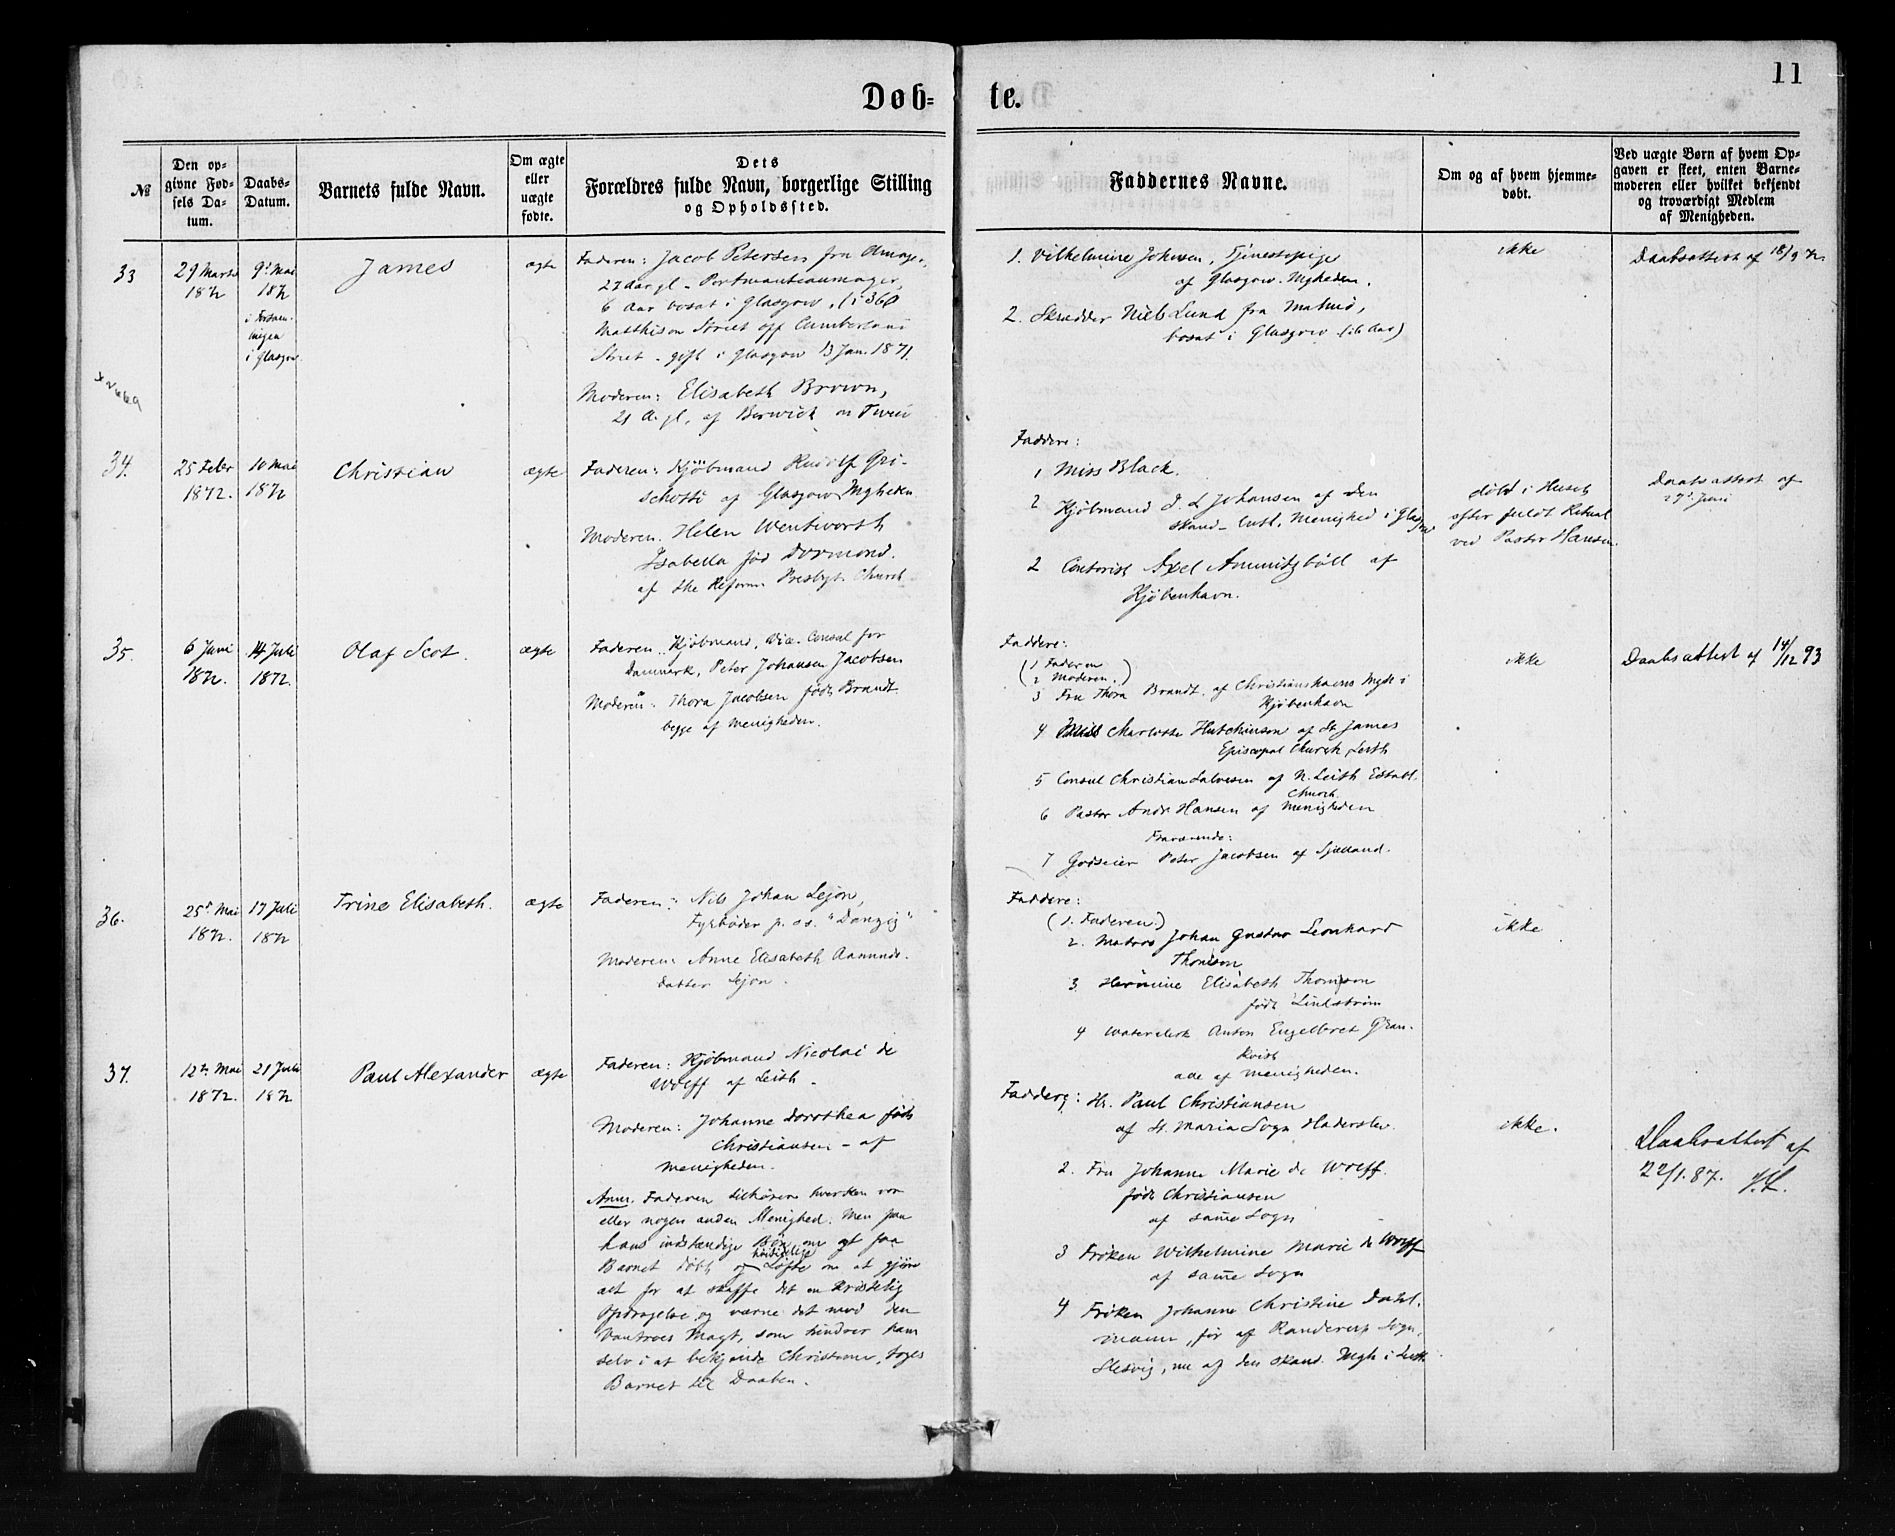 Døb=
te.
11
№
Den op-
givne Fød-
sels Da-
tum.
Daabs-
Datum.
Barnets fulde Navn.
Om ægte
eller
uægte
fødte.
Dets
Forældres fulde Navn, borgerlige Stilling
og Opholdssted.
Faddernes Navne.
Om og af hvem hjemme-
døbt.
Ved uægte Børn af hvem Op-
gaven er skeet, enten Barne-
moderen eller hvilket bekjendt
og troværdigt Medlem
af Menigheden.
33
29 Marts
1872
9d Mai
1872
i Forsam-
lingen
i Glasgow
James
ægte
Faderen: Jacob Petersen fra Amager,
27 Aar gl - Portmanteaumager,
6 Aar bosat i Glasgow, (i 360
Matthison Street off Cumberland
Street - gift i Glasgow 13 Jan. 1871.
Moderen: Elisabeth Brown,
21 A. gl, af Berwick on Tweed
1. Vilhelmine Johnsen, Tjenestepige
af Glasgow. Mgheden.
2. Skrædder Niels Lund fra Malmö,
bosat i Glasgow
ikke
Daabsattest af 18/9 72.
34.
25 Febr
1872.
10 Mai
1872
Christian
ægte
Faderen: Kjöbmand Rudolf Gri-
schotti af Glasgow Mgheden
Moderen. Helen Wentworth
Isabella fød Dormond.
af the Reform. Presbyt. Church
Faddere:
1 Miss Black.
2 Kjøbmand d. L Johansen af den
skand- luth. Menighed i Glasgow
2 Contorist Axel Ammitzbøll af
Kjøbenhavn.
døbt i Huset
efter fuldt Ritual
ved Pastor Hansen.
Daabsattest af
27d Juni
35.
6 Juni
1872.
14 Juli
1872.
Olaf Scot.
ægte
Faderen. Kjøbmand, Vice-Consul for
Danmark, Peter Johansen Jacobsen
Moderen: Thora Jacobsen født Brandt
begge af Menigheden.
Faddere:
(1 Faderen
2 Moderen.)
3 Fru Thora Brandt. af Christianshavns Mgh i
Kjøbenhavn
4 Miss Charlotte Hutchinson af St James
Episcopal Church, Leith
5 Consul Christian Salvesen af N. Leith Establ.
Church.
6 Pastor Andr Hansen af Menigheden
Fraværende:
7 Godseier Peter Jacobsen af Sjælland.
ikke
Daabsattest af 14/12 93
36.
25d Mai
1872.
17 Juli
1872
Trine Elisabeth.
ægte
Faderen: Nils Johan Lejon,
Fyrbøder p. ss. "Danzig"
Moderen: Anne Elisabeth Aamunds-
datter Lejon.
Faddere:
(1. Faderen.)
2. Matros Johan Gustav Leonhard
Thomson
3. Hermine Elisabeth Thomson
født Lindstrøm
4 Waterclerk Anton Engelbret Gran-
kvist
alle af Menigheden.
ikke
37.
12te Mai
1872.
21 Juli
1872
Paul Alexander
ægte
Faderen: Kjøbmand Nicolai de
Wolff af Leith -
Moderen: Johanne Dorothea født
Christiansen - af
Menigheden.
Anm. Faderen tilhører hverken vor
eller nogen anden Menighed. Men paa
hans indstændige Bøn om at faa
Barnet døbt og høitidelige Løfte om at gjøre
alt for at skaffe det en kristelig
Opdragelse og værne det mod den
Vantroes Magt, som hindrer ham
selv i at bekjende Christum, toges
Barnet til Daaben.
Faddere: Hr. Paul Christiansen
af St. Maria Sogn Haderslev.
2. Fru Johanne Marie de Wolff.
født Christiansen
af samme Sogn
3 Frøken Wilhelmine Marie de Wolff
af samme Sogn
4 Frøken Johanne Christine Dahl-
mann, før af Randerup Sogn,
Slesvig, nu af den skand. Mgh i Leith.
ikke.
Daabsattest af
22/1. 87.